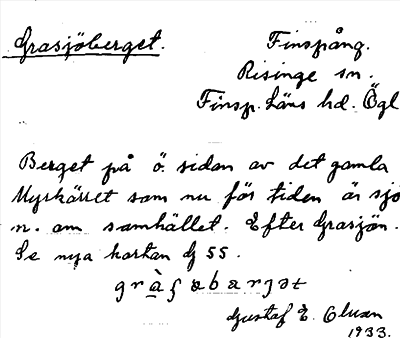 Grasjöberget.
Finspång.
Risinge sn.
Finsp. Läns hd. Ögl
Berget på ö. sidan av det gamla
Myrkärret som nu för tiden är sjö
n. om samhället. Efter Grasjön.
Se nya kartan G 55.
Gustaf E. Olsson
1933.